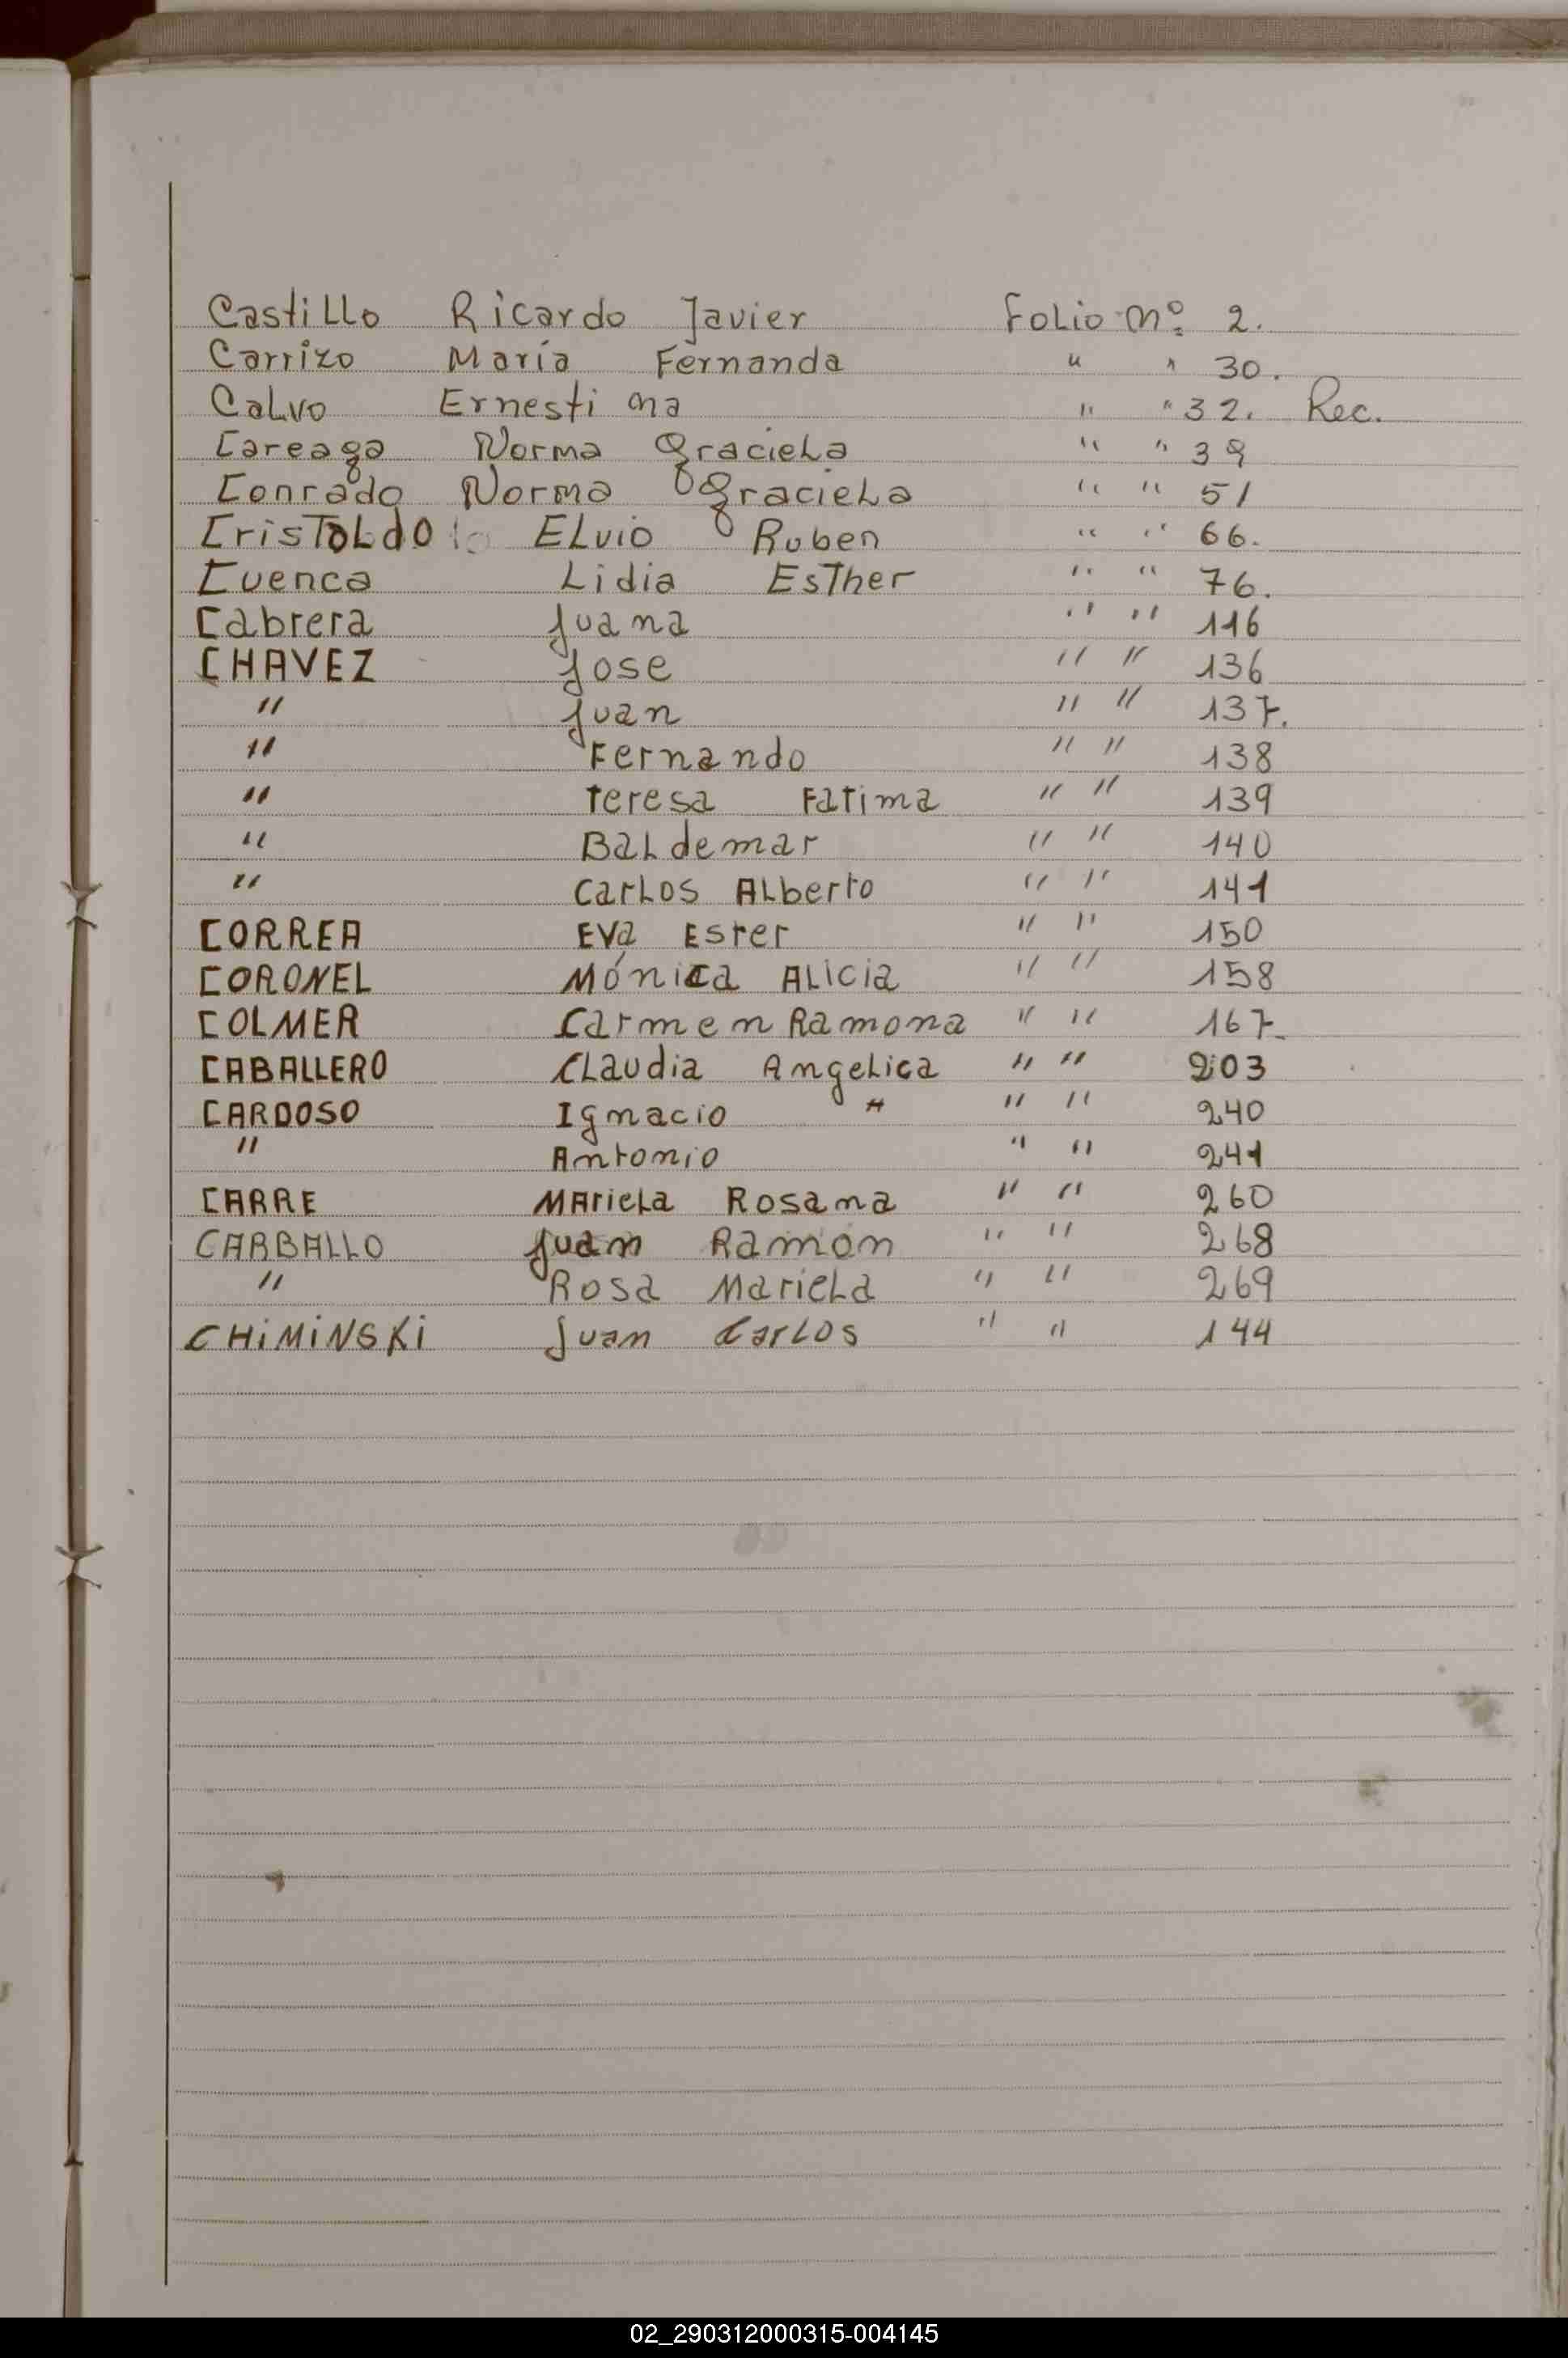 Castillo Ricardo Javier Folio Nº 2.
Carrizo María Fernanda " " 30.
Calvo Ernestina " " 32. Rec.
Careaga Norma Graciela " " 39
Conrado Norma Graciela " " 51
Cristoldo Elvio Ruben " " 66.
Cuenca Lidia Esther " " 76.
Cabrera Juana " " 116
CHAVEZ Jose " " 136
" Juan " " 137.
" Fernando " " 138
" Teresa Fatima " " 139
" Baldemar " " 140
" Carlos Alberto " " 141
CORREA Eva Ester " " 150
CORONEL Mónica Alicia " " 158
COLMER Carmen Ramona " " 167.
CABALLERO Claudia Angelica " " 203
CARDOSO Ignacio " " " 240
" Antonio " " 241
CARRE Mariela Rosana " " 260
CARBALLO Juan Ramón " " 268
" Rosa Mariela " " 269
CHIMINSKI Juan Carlos " " 144
02_290312000315-004145